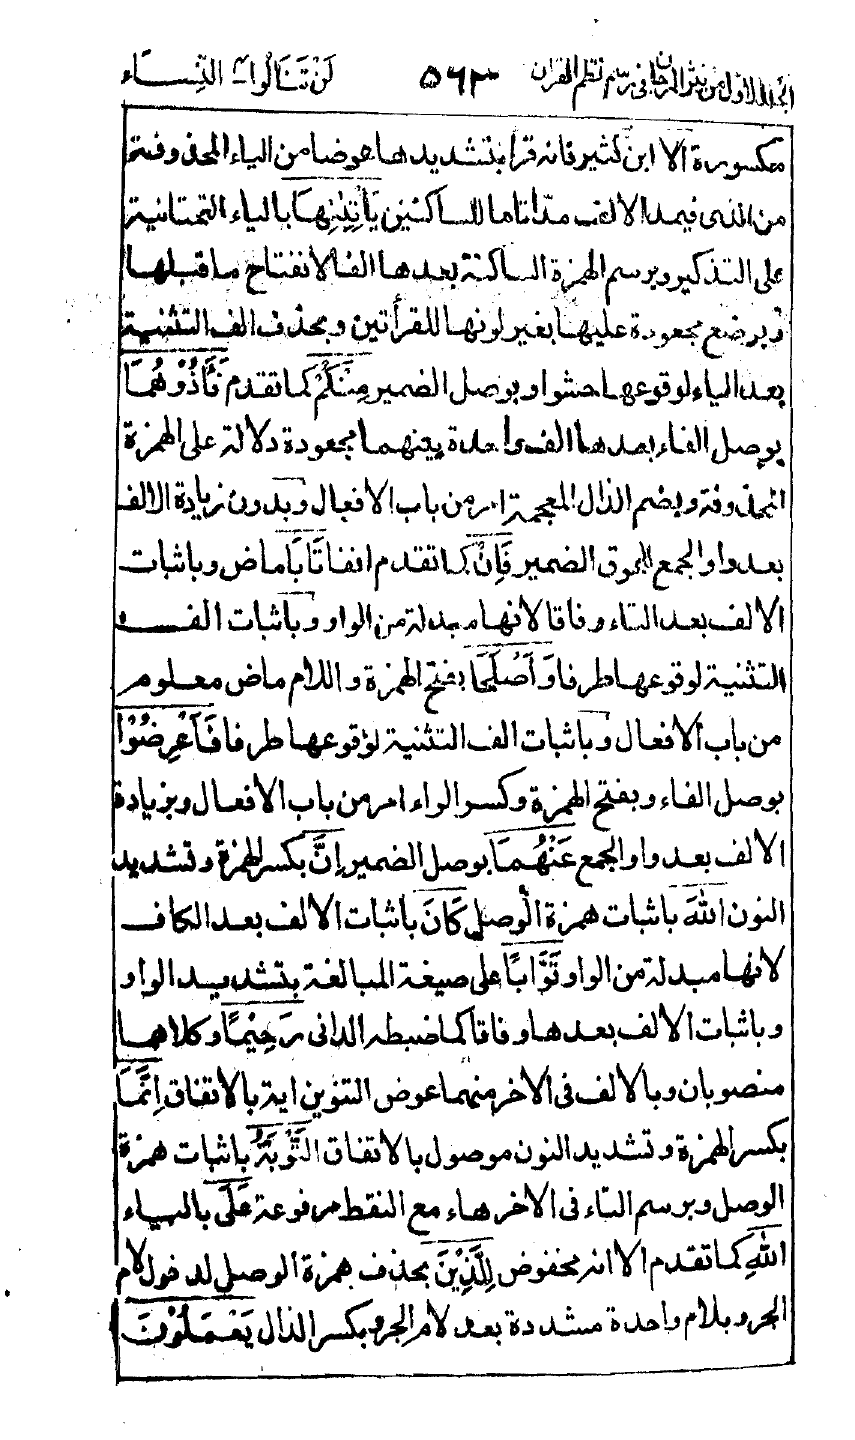 الجلد الاول من نثر المرجان فى رسم نظم القران ٥٦٣ لَنْ تَنَالُوا۴ النِّسَاء
مكسورة الا ابن كثير فانه قرأ بتشديدها عوضا من الياء المحذوفة
من الذى فيمد الالف مدّا تاما للساكنين يَأْتِيٰنِهَا بالياء التحتانية
على التذكير وبرسم الهمزة الساكنة بعدها الفا لانفتاح ما قبلها
وبوضع مجعودة عليها بغير لونها للقرأتين وبحذف الف التثنية
بعد الياء لوقوعها حشوا وبوصل الضمير مِنْكُمْ كما تقدم فَاٰذُوْهُمَا
بوصل الفاء بعدها الف واحدة بينهما مجعودة دلالة على الهمزة
المحذوفة وبضم الذال المعجمة امر من باب الافعال وبدون زيادة الالف
بعد واو الجمع لحوق الضمير فَاِنْ كما تقدم انفا تَابَا ماض وباثبات
الالف بعد التاء وفاقا لانها مبدلة من الواو وباثبات الف
التثنية لوقوعها طرفا وَاَصْلَحَا بفتح الهمزة واللام ماض معلوم
من باب الافعال وباثبات الف التثنية لوقوعها طرفا فَاَعْرِضُوْا
بوصل الفاء وبفتح الهمزة وكسر الراء امر من باب الافعال وبزيادة
الالف بعد واو الجمع عَنْهُمَا بوصل الضمير اِنَّ بكسر الهمزة وتشديد
النون اللهَ باثبات همزة الوصل كَانَ باثبات الالف بعد الكاف
لانها مبدلة من الواو تَوَّابًا على صيغة المبالغة بتشديد الواو
وباثبات الالف بعدها وفاقا كما ضبطه الدانى رَحِيْمًا وكلاهما
منصوبان وبالالف فى الاخر منهما عوض التنوين اية بالاتفاق اِنَّمَا
بكسر الهمزة وتشديد النون موصول بالاتفاق التَّوْبَةُ باثبات همزة
الوصل وبرسم التاء فى الاخر هاء مع النقط مرفوعة عَلَى بالياء
اللهِ كما تقدم الا انه مخفوض لِلَّذِيْنَ بحذف همزة الوصل لدخول لام
الجر وبلام واحدة مشددة بعد لام الجر وبكسر الذال يَعْمَلُوْنَ